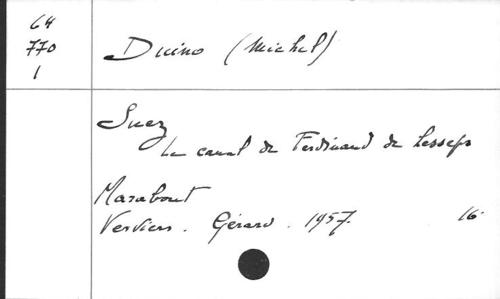 64
770
1
Duino (Michel)
Suez
Le canal de Ferdinand de Lesseps
Marabout
Verviers. Gérard. 1957. 16.